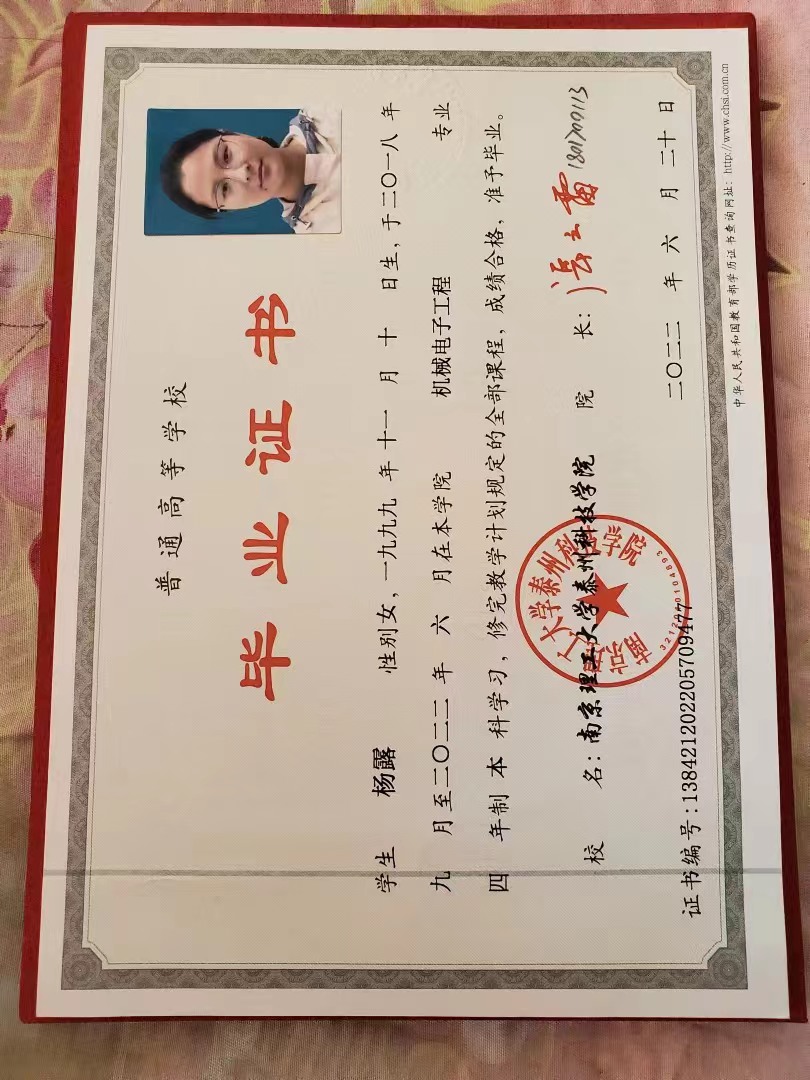 普通高等学校
毕业证书
学生 杨露 性别女，一九九九年十一月十日生，于二〇一八年
九月至二〇二二年六月在本学院 机械电子工程 专业
四年制本科学习，修完教学计划规定的全部课程，成绩合格，准予毕业。
校名：南京理工大学泰州科技学院 院长：
1801200113
南京理工大学泰州科技学院
证书编号：138421202205709477 二〇二二年六月二十日
中华人民共和国教育部学历证书查询网址：http://www.chsi.com.cn